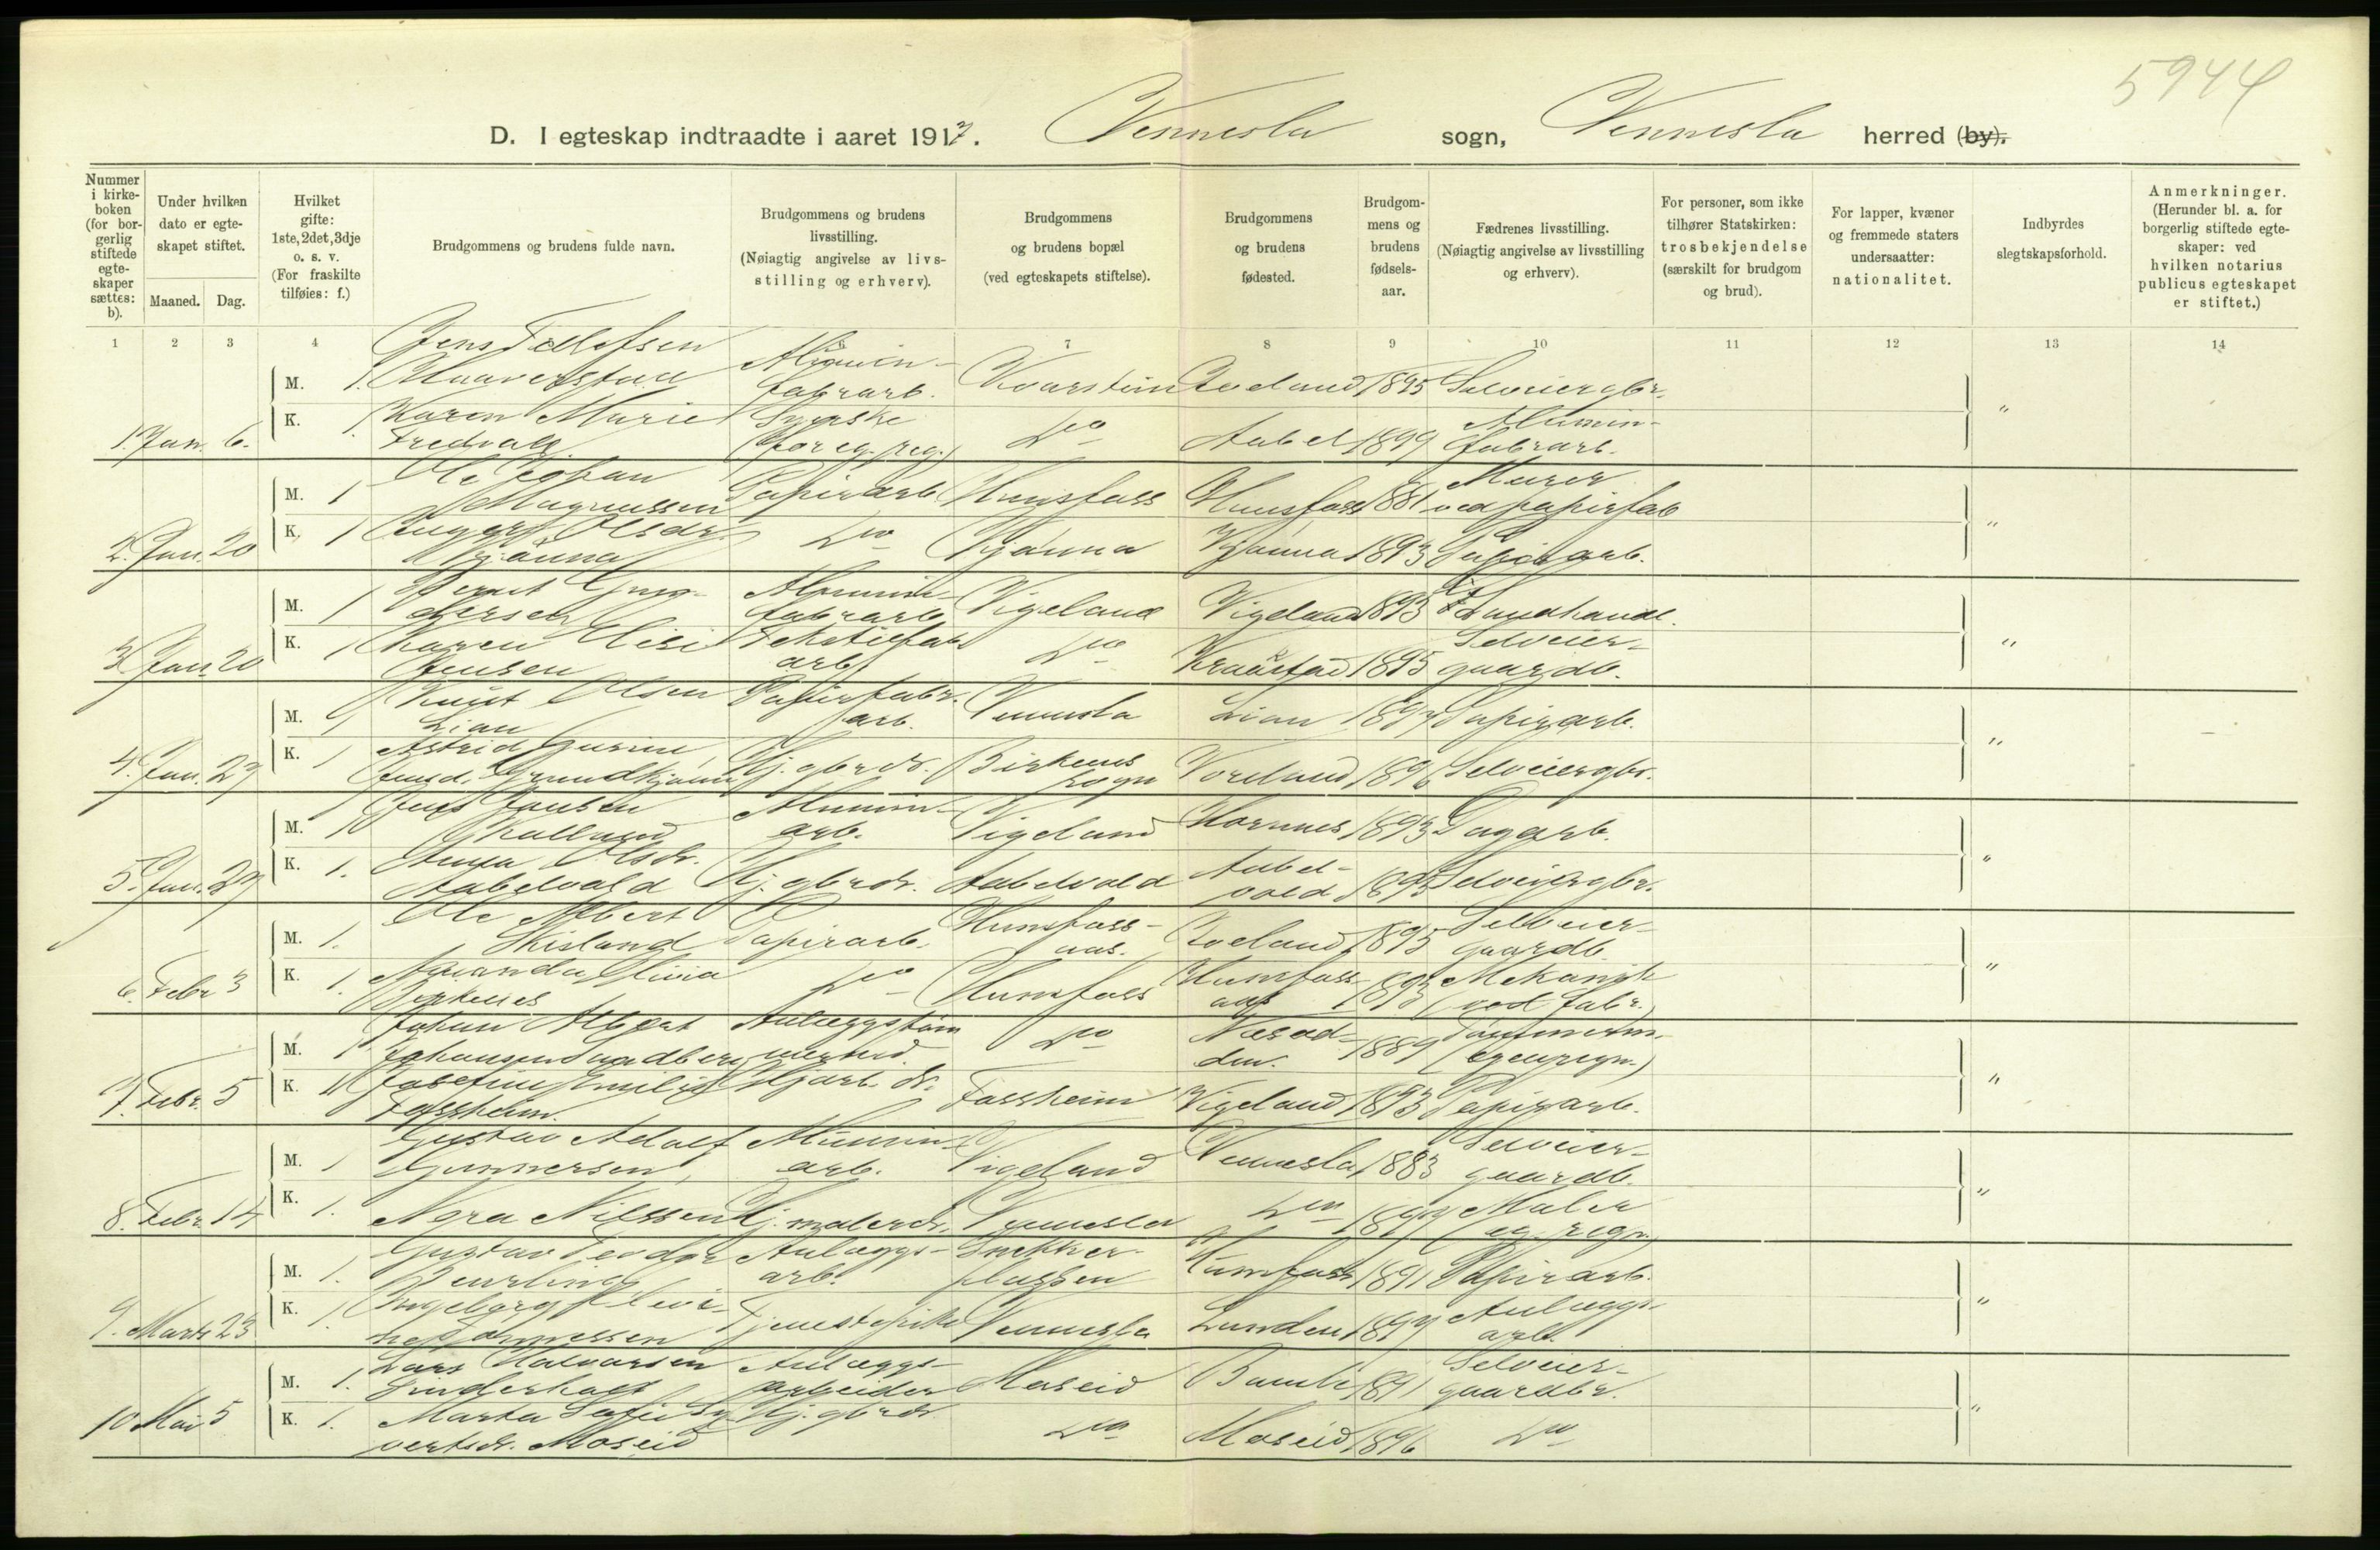 5944
D. I egteskap indtraadte i aaret 1917. Vennesla sogn, Vennesla herred (by).
Nummer i kirkeboken (for borgerlig stiftede egteskaper sættes: b).
Under hvilken dato er egteskapet stiftet.
Maaned. Dag.
Hvilket gifte: 1ste, 2det, 3dje o. s. v. (For fraskilte tilføies: f.)
Brudgommens og brudens fulde navn.
Brudgommens og brudens livsstilling. (Nøiagtig angivelse av livsstilling og erhverv).
Brudgommens og brudens bopæl (ved egteskapets stiftelse).
Brudgommens og brudens fødested.
Brudgommens og brudens fødselsaar.
Fædrenes livsstilling. (Nøiagtig angivelse av livsstilling og erhverv).
For personer, som ikke tilhører Statskirken: trosbekjendelse (særskilt for brudgom og brud).
For lapper, kvæner og fremmede staters undersaatter: nationalitet.
Indbyrdes slegtskapsforhold.
Anmerkninger. (Herunder bl. a. for borgerlig stiftede egteskaper: ved hvilken notarius publicus egteskapet er stiftet.)
1 2 3 4 6 7 8 9 10 11 12 13 14
M. 1. Jens Tellefsen Alumin-fabrarb. Kvarstein 1895 Selveiergbr.
1. Jan. 6. K. 1. Karen Marie Syerske (for eg. reg.) Do Aabel 1899 Alumin-fabrarb.
M. 1 Ole Johan Magnussen Papirarb Hunsfoss Hunsfoss 1881 Murer ved papirfab
2. Jan. 20 K. 1 Olsdr. Kjänna Do Kjänna Kjänna 1893 Papirarb.
M. 1 Bernt Gundersen fabrarb Vigeland Vigeland 1893 Landhandl.
3. Jan. 20 K. 1 Karen Elise Jensen arb Do 1895 Selveier-gaardb.
M. 1 Knut Olsen Lian Papirfabr. arb. Vennesla Lian Papirarb.
4. Jan. 27 K. 1 Astrid Gurine Hj. gbrdr. Birkenes sogn 1896 Selveiergbr.
M. 1 Jens Jensen Alumin-arb. Vigeland Hornnes 1893 Dagarb.
5. Jan. 27 K. 1. Anna Olsdr. Aabelvold Hj. gbrdr. Aabelvold Aabel-vold 1895 Selveiergbr.
M. 1. Ole Albert Skisland Papirarb. Hunsfoss-aas. Iveland 1895 Selveier-gaardb.
6. Febr 3 K. 1. Amanda Olivia Birkenes Do Hunsfoss Hunsfoss aas 1893 Mekanik (ved fabr.)
M. 1 Johan Albert Johansen Sandberg Anlæggstømmermd. Do Næsod-den. 1889 Tømmerm. (egenregn.)
7. Febr. 5 K. 1 Josefine Emilie Fossheim. Hj. arb. dr. Fossheim Vigeland 1893 Papirarb.
M. 1 Gustav Adolf Gunnersen, Alumin-arb. Vigeland Vennesla 1883 Selveier-gaardb.
8. Febr. 14 K. 1. Nora Nilssen Hj. malerdr. Vennesla Do Maler (eg. regn.)
M. 1. Gustav Teodor Anlæggs-arb. Snekker-plassen Hunsfoss 1891 Papirarb.
9. Marts 23 K. 1. Ingeborg Tjenestepike Vennesla Lunden Anlæggs-arb.
M. 1. Lars Halvorsen Anlæggs-arbeider Moseid Bamble 1891 Selveier-gaardbr.
10 Mai 5 K. 1. Marta Sofie Syvertsdr. Moseid Hj. gbrdr Do Moseid 1896 Do